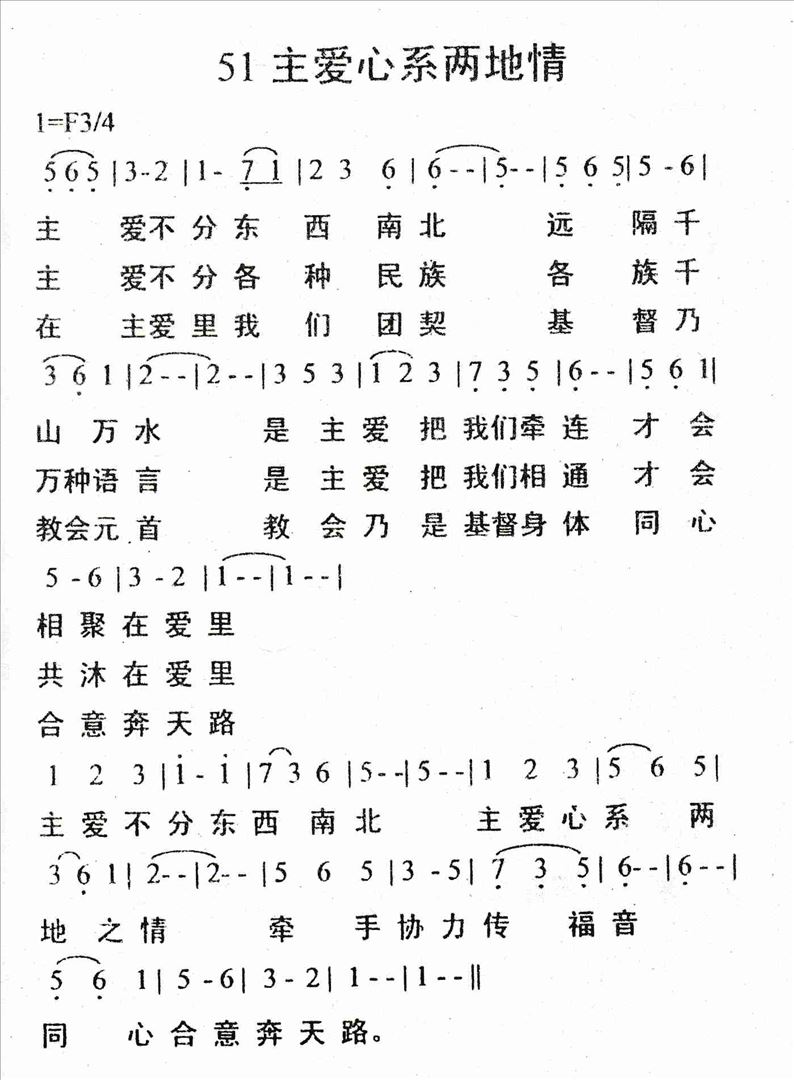 51 主爱心系两地情
1=F3/4
5 6 5 |3--2 |1- 7 1 |2 3 6 |6--|5--|5 6 5|5-6|
主 爱不分东 西 南北 远 隔千
主 爱不分各 种 民族 各 族千
在 主爱里我 们 团契 基 督乃
3 6 1 |2--|2--|3 5 3 |1 2 3 |7 3 5 |6--|5 6 1|
山 万水 是 主 爱 把 我们牵 连 才 会
万种语言 是 主 爱 把 我们相 通 才 会
教会元首 教 会 乃 是 基督身 体 同 心
5 - 6 |3 - 2 |1 - -|1 - -|
相 聚 在 爱 里
共 沐 在 爱 里
合 意 奔 天 路
1 2 3 |1 - 1 |7 3 6 |5--|5--|1 2 3 |5 6 5|
主 爱 不 分 东 西 南 北 主 爱 心 系 两
3 6 1 |2--|2-- |5 6 5 |3 -5| 7 3 5|6--|6--|
地 之 情 牵 手 协 力 传 福 音
5 6 1| 5 -6| 3 -2 |1--|1--‖
同 心 合 意 奔 天 路。